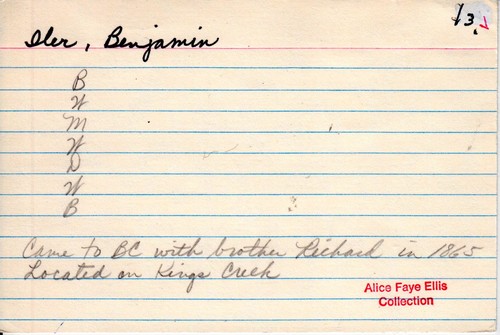 13.
Iler, Benjamin
B
W
M
W
D
W
B
Came to BC with brother Richard in 1865
Located on Kings Creek
Alice Faye Ellis
Collection